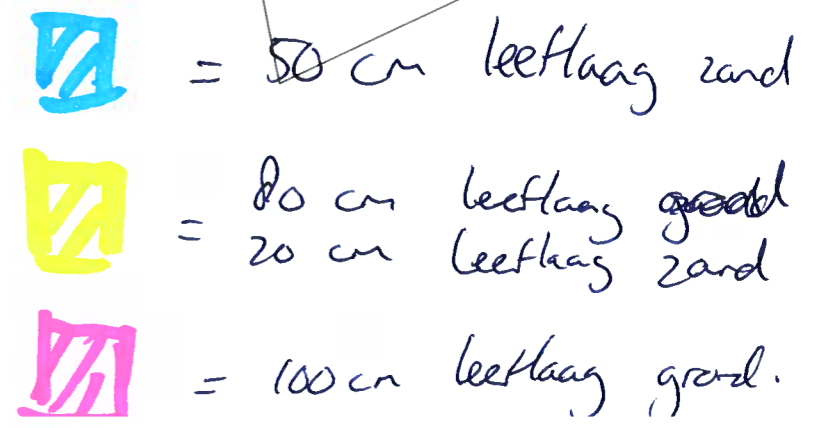 = 50 cm leeflaag zand
= 80 cm leeflaag grond
20 cm leeflaag zand
= 100 cm leeflaag grond.